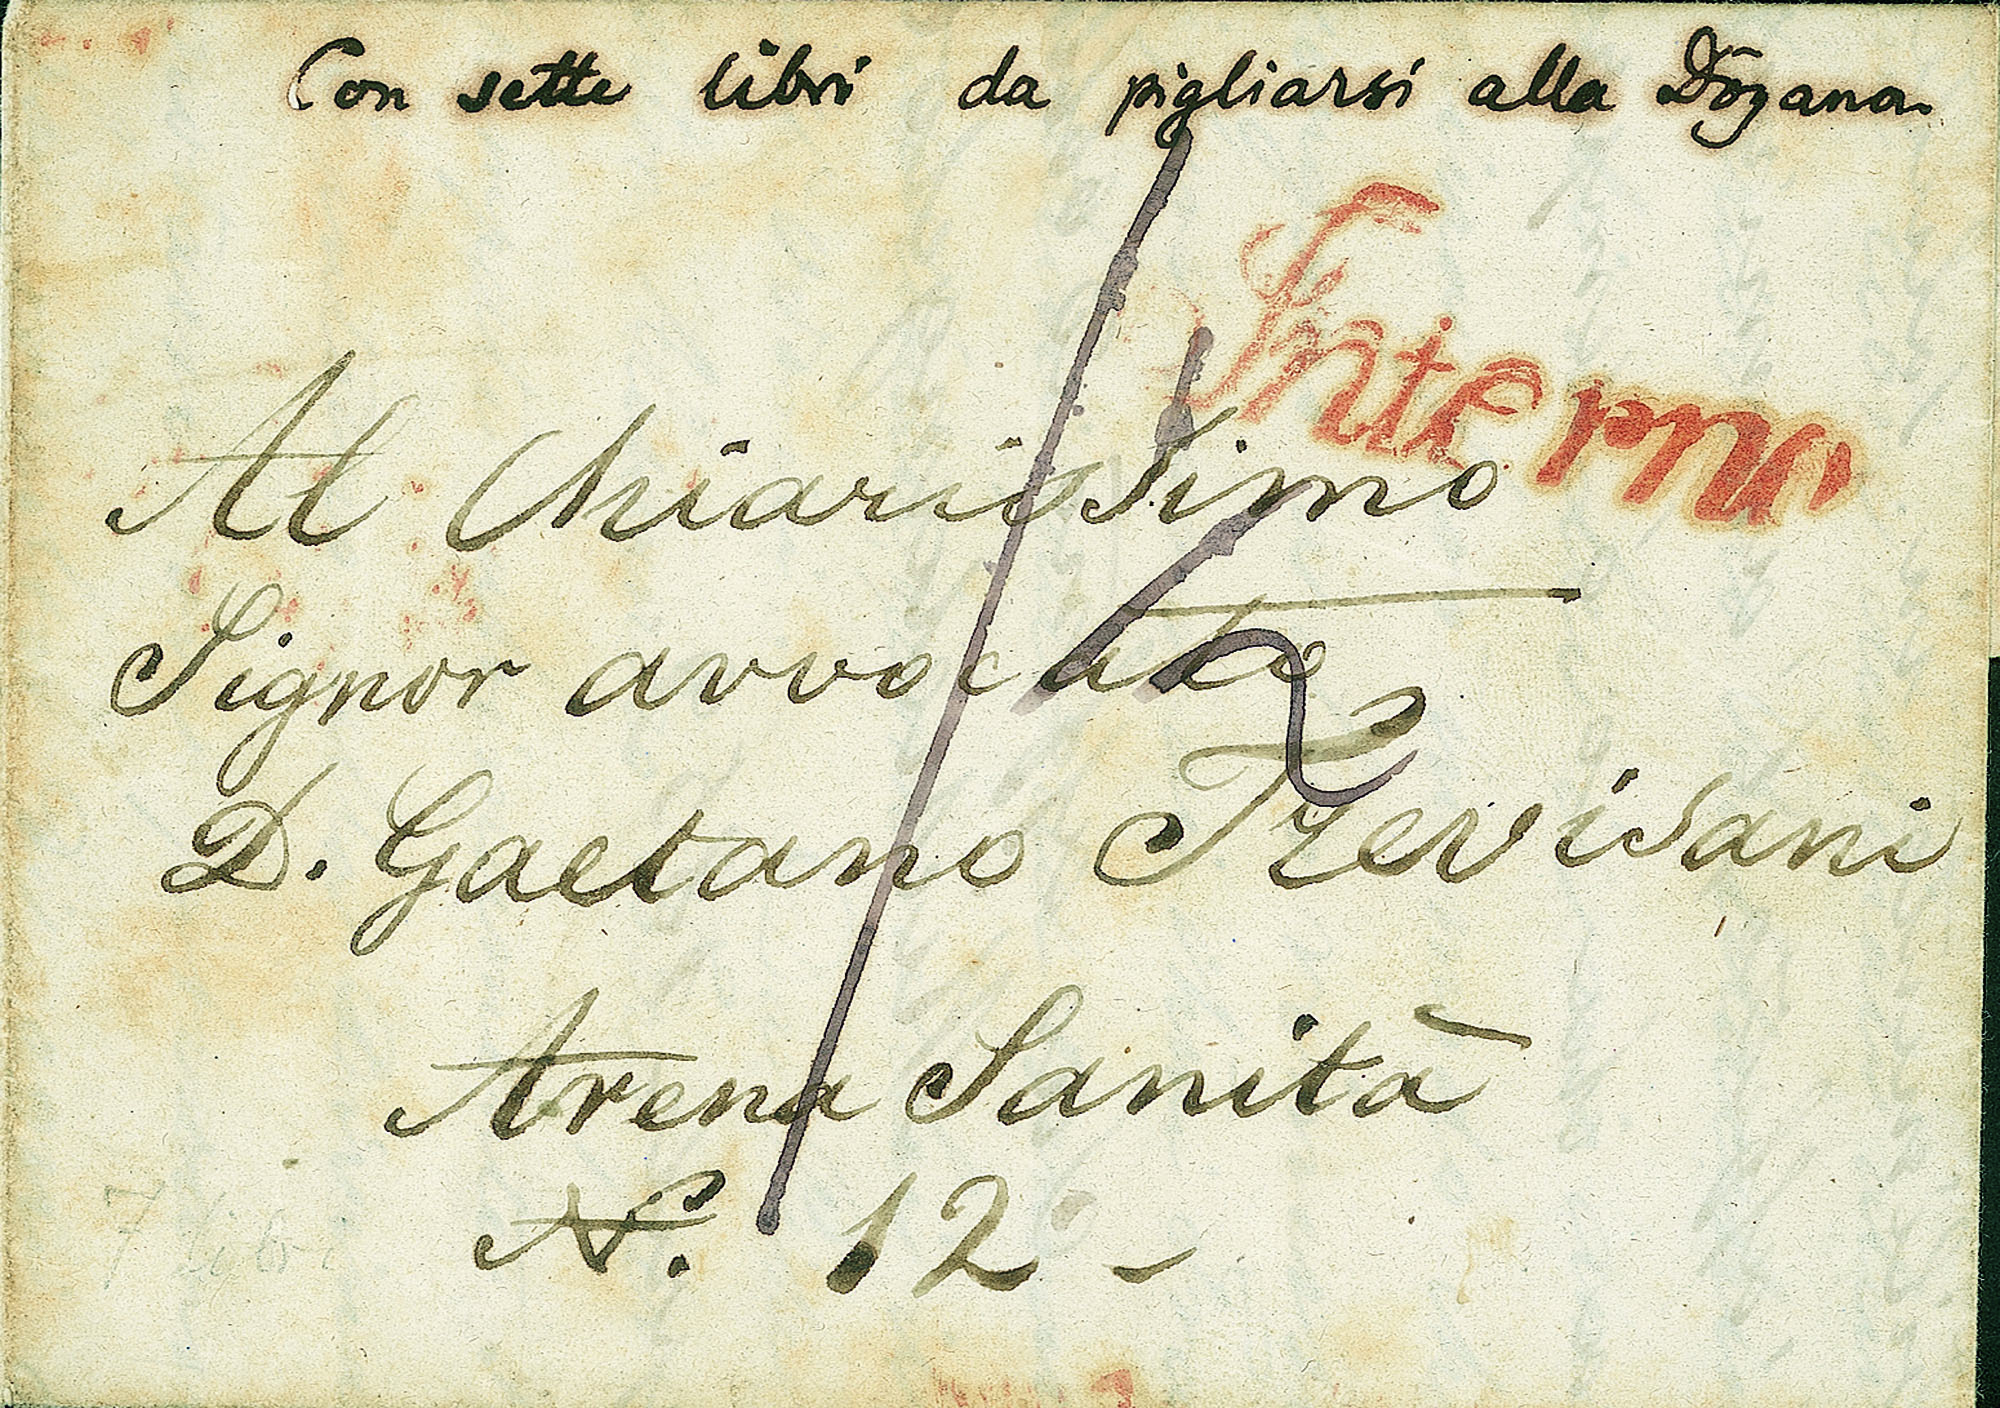 Con sette libri da pigliarsi alla Dogana
Interno
Al Chiarissimo
Signor avvocato
D. Gaetano Trevisani
Arena Sanità
N. 12 -
7 libri